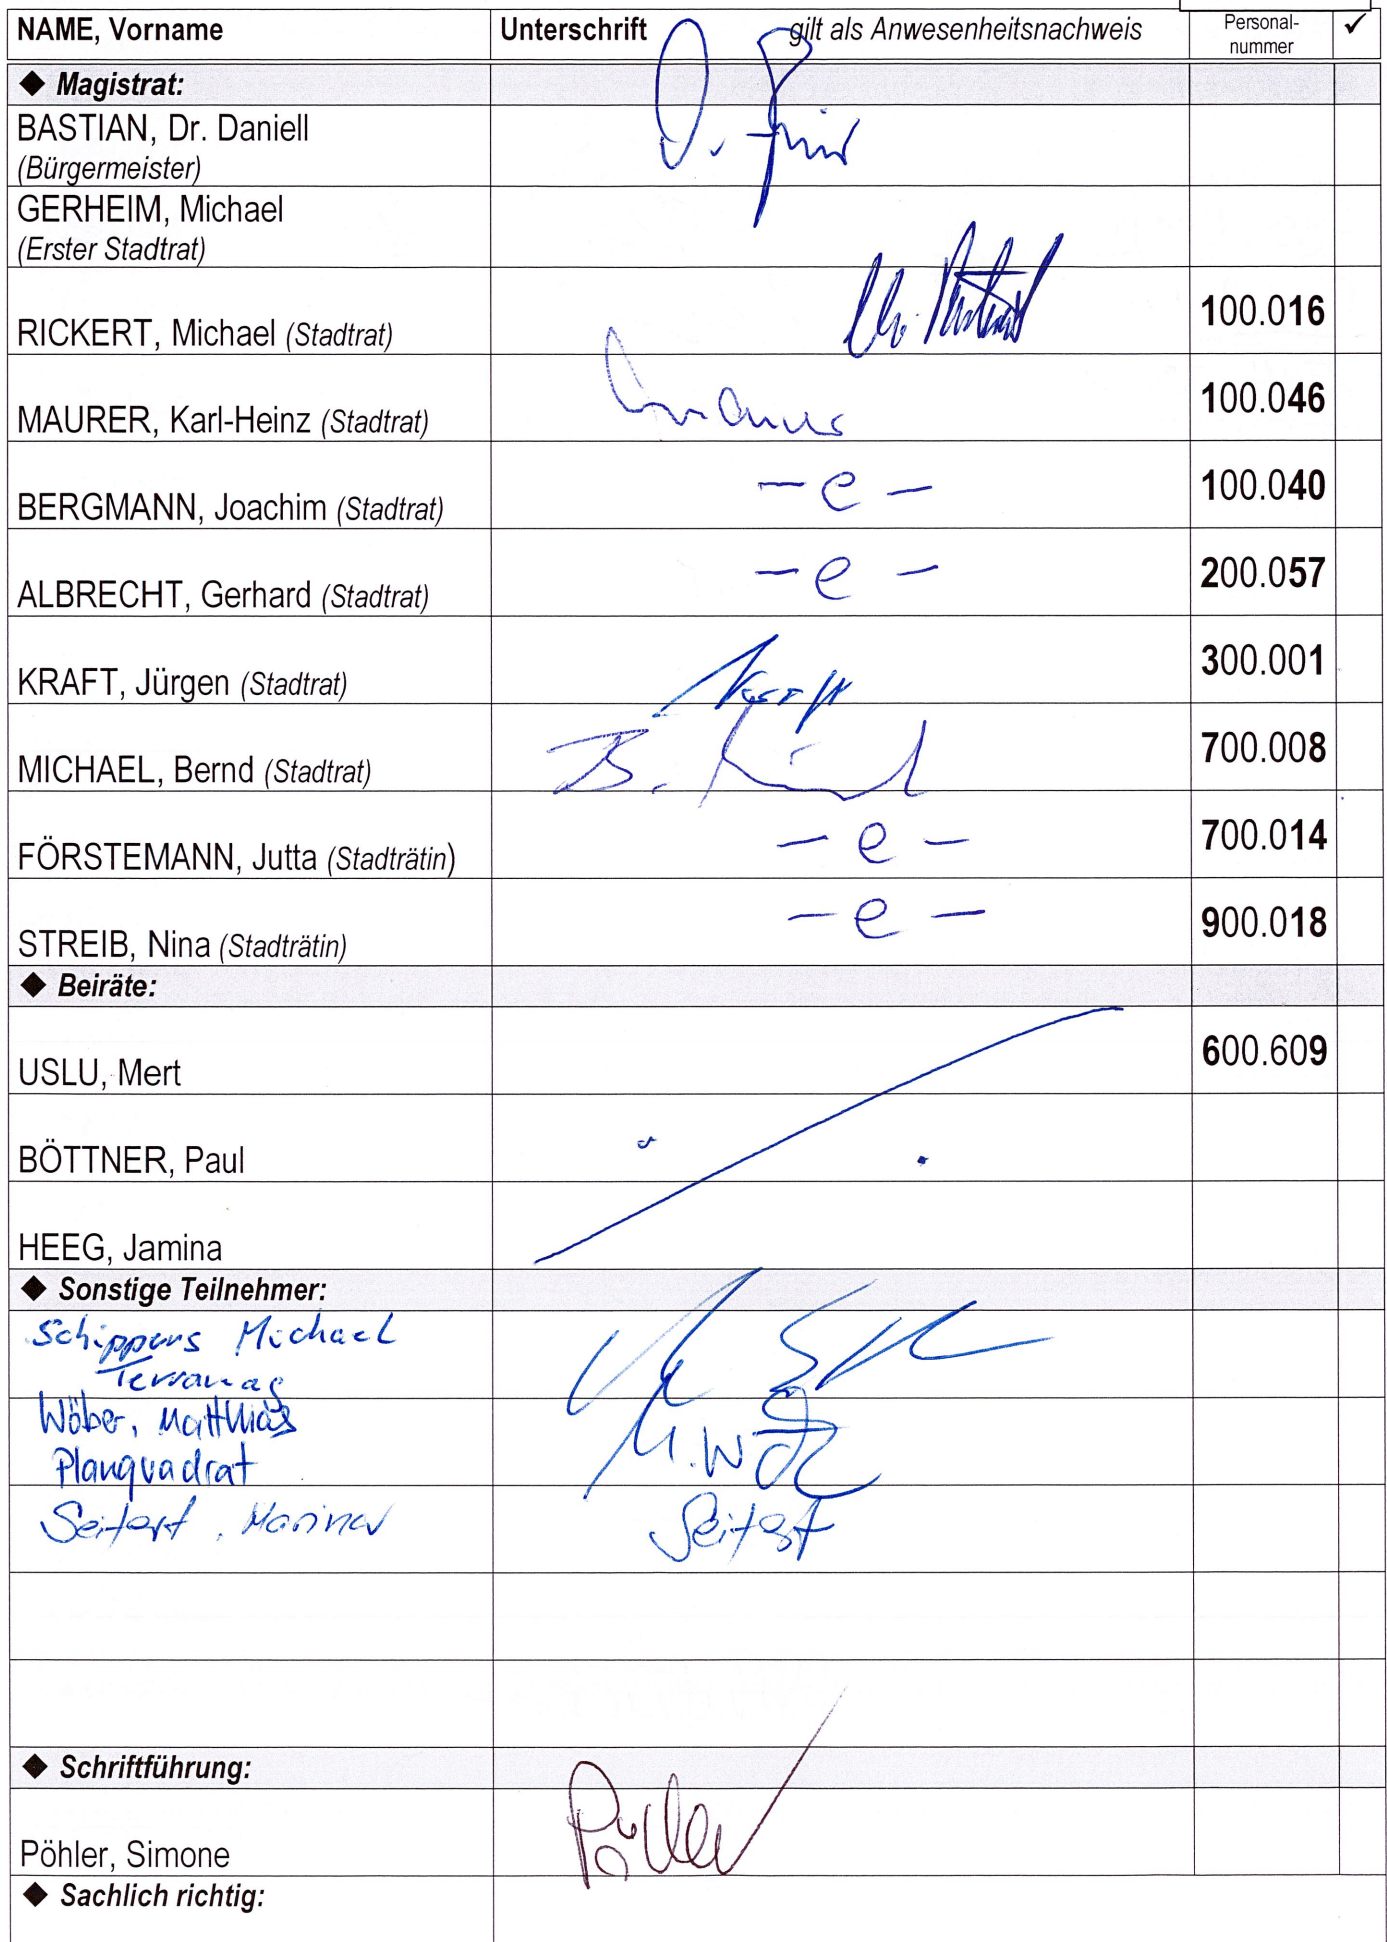 NAME, Vorname Unterschrift gilt als Anwesenheitsnachweis Personal-nummer ✓
◆ Magistrat:
BASTIAN, Dr. Daniell
(Bürgermeister)
GERHEIM, Michael
(Erster Stadtrat)
RICKERT, Michael (Stadtrat) 100.016
MAURER, Karl-Heinz (Stadtrat) 100.046
BERGMANN, Joachim (Stadtrat) - e - 100.040
ALBRECHT, Gerhard (Stadtrat) - e - 200.057
KRAFT, Jürgen (Stadtrat) Kraft 300.001
MICHAEL, Bernd (Stadtrat) 700.008
FÖRSTEMANN, Jutta (Stadträtin) - e - 700.014
STREIB, Nina (Stadträtin) - e - 900.018
◆ Beiräte:
USLU, Mert 600.609
BÖTTNER, Paul
HEEG, Jamina
◆ Sonstige Teilnehmer:
Schippers Michael
Terramag
Wöber, Matthias
Planquadrat
Seifert, Marina Seifert
◆ Schriftführung:
Pöhler, Simone Pöhler
◆ Sachlich richtig: